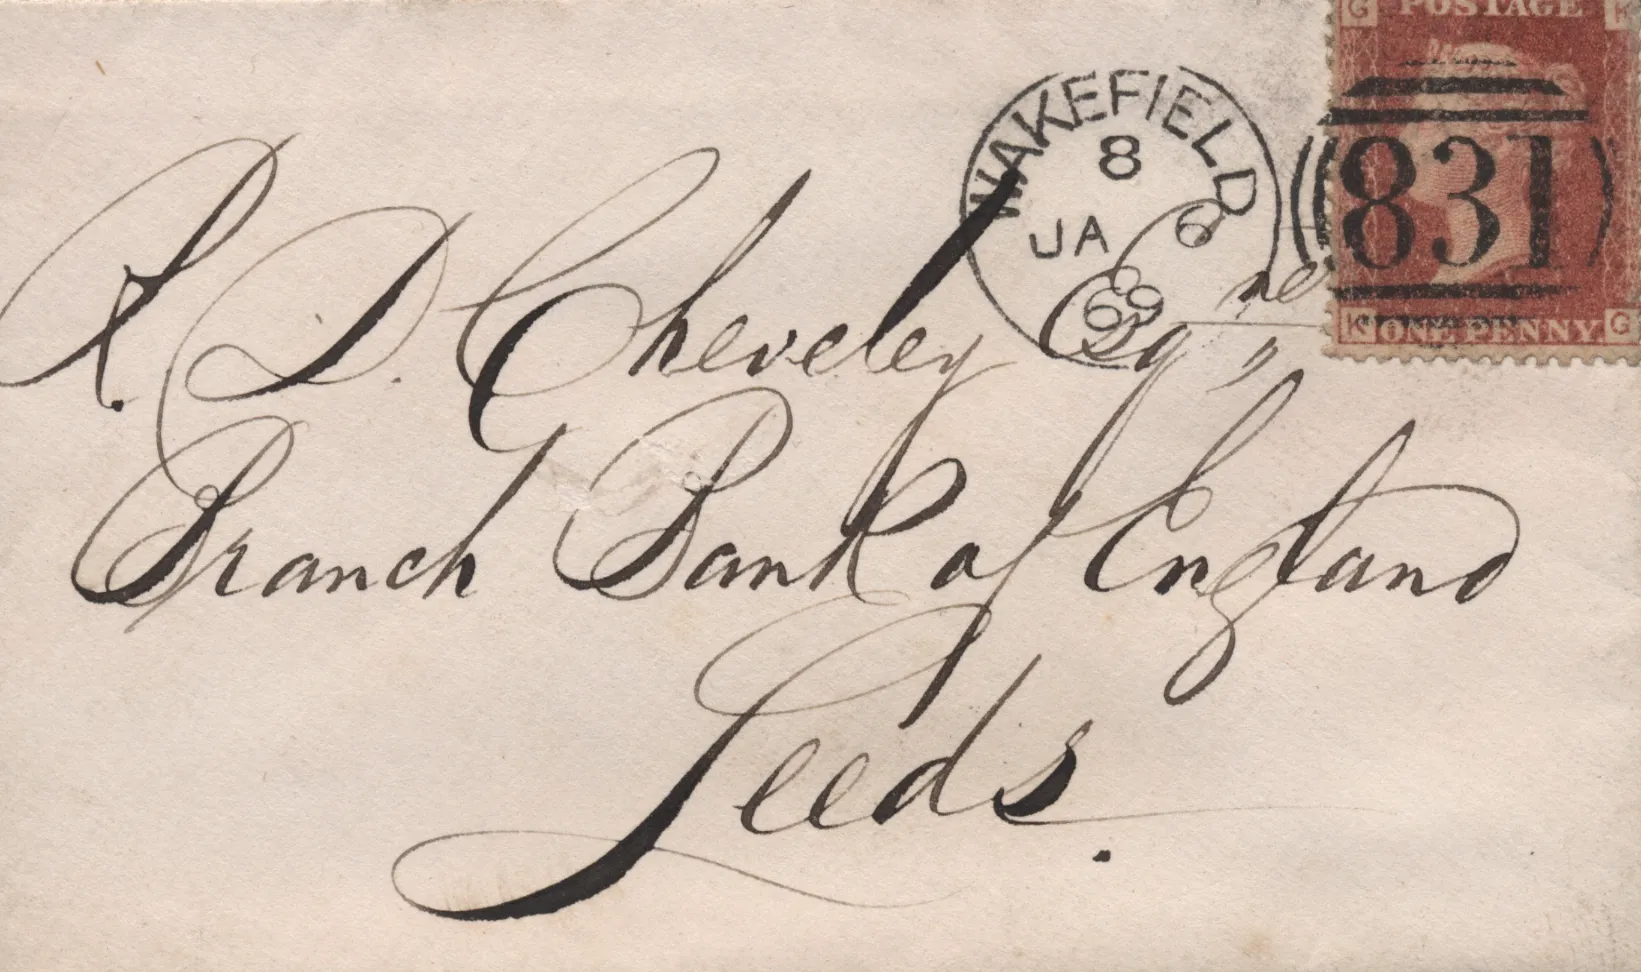 G POSTAGE K
WAKEFIELD
8
JA 6
69
831
K ONE PENNY G
R. D. Cheveley Esqre,
Branch Bank of England
Leeds.